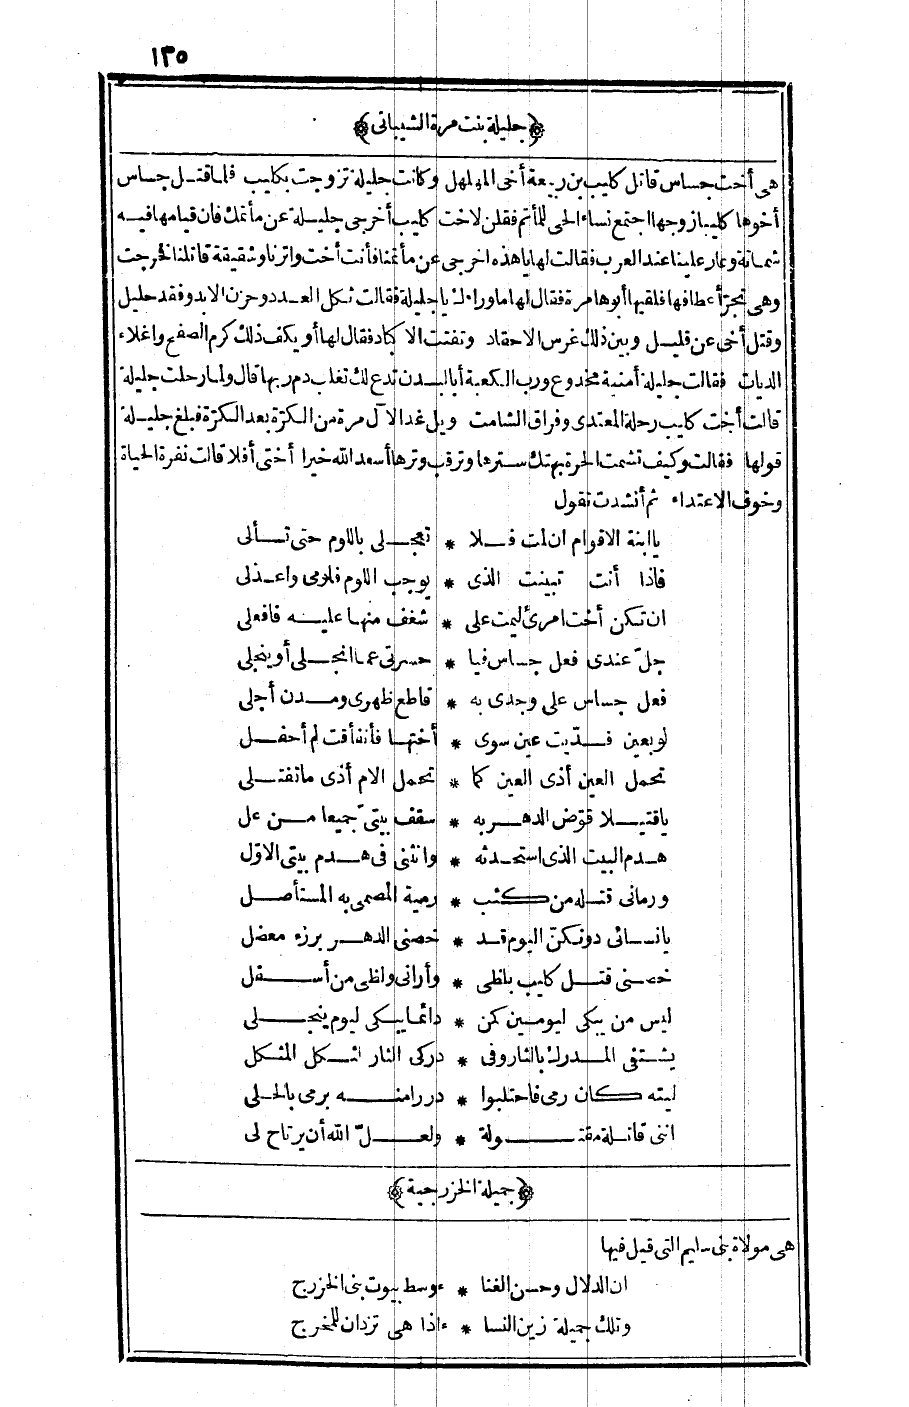 ١٣٥
﴿جليلة بنت مرة الشيبانى﴾
هى أخت جساس قاتل كليب بن ربيعة أخى المهلهل وكانت جليلة تزوجت بكليب فلما قتل جساس
أخوها كليبا زوجها اجتمع نساء الحى للمأتم فقلن لاخت كليب أخرجى جليلة عن مأتمك فان قيامها فيه
شماتة وعار علينا عند العرب فقالت لها يا هذه اخرجى عن مأتمنا فأنت أخت واترنا وشقيقة قاتلنا فخرجت
وهى تجرّ أعطافها فلقيها أبوها مرة فقال لها ما وراءك يا جليلة فقالت ثكل العدد وحزن الابد وفقد حليل
وقتل أخى عن قليل وبين ذلك غرس الاحقاد وتفتت الاكباد فقال لها أو يكف ذلك كرم الصفح واغلاء
الديات فقالت جليلة أمنية مخدوع ورب الكعبة أبالبدن تدع لك تغلب دم ربها قال ولما رحلت جليلة
قالت أخت كليب رحلة المعتدى وفراق الشامت ويل غدا لآل مرة من الكرّة بعد الكرّة فبلغ جليلة
قولها فقالت وكيف تشمت الحرة بهتك سترها وترقب وترها أسعد الله خيرا أختى أفلا قالت نفرة الحياة
وخوف الاعتداء ثم أنشدت تقول
يا ابنة الاقوام ان لمت فلا * تعجلى باللوم حتى تسألى
فاذا أنت تبينت الذى * يوجب اللوم فلومى واعذلى
ان تكن أخت امرئ ليمت على * شغف منها عليه فافعلى
جلّ عندى فعل جساس فيا * حسرتى عما انجلى أو ينجلى
فعل جساس على وجدى به * قاطع ظهرى ومدن أجلى
لو بعين فدّيت عين سوى * أختها فأنفأقت لم أحفل
تحمل العين أذى العين كما * تحمل الام أذى ما تفتلى
يا قتيلا قوّض الدهر به * سقف بيتىّ جميعا من عل
هدم البيت الذى استحدثه * وانثنى فى هدم بيتى الاوّل
ورمانى قتله من كثب * رمية المصمى به المستأصل
يا نسائى دونكنّ اليوم قد * خصنى الدهر برزء معضل
خصنى قتل كليب بلظى * وأرانى ولظى من أسفل
ليس من يبكى ليومين كمن * دائما يبكى ليوم ينجلى
يشتفى المدرك بالثار وفى * دركى الثار لثكل المثكل
ليته كان رمى فاحتلبوا * دررا منه يرمى بالحلى
اننى قاتلة مقتولة * ولعلّ الله أن يرتاح لى
﴿جميلة الخزرجية﴾
هى مولاة بنى سليم التى قيل فيها
ان الدلال وحسن الغنا * ءوسط بيوت بنى الخزرج
وتلك جميلة زين النسا * ءاذا هى تزدان للمخرج